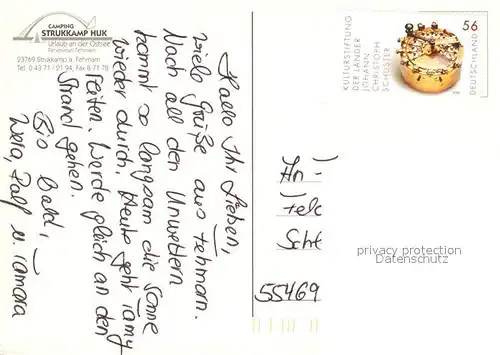 CAMPING
STRUKKAMP HUK
Urlaub an der Ostsee
Ferieninsel Fehmarn
23769 Strukkamp a. Fehmarn
Tel. 0 43 71 / 21 94, Fax 8 71 78
Hallo Ihr Lieben,
viele Grüße aus Fehmarn.
Nach all den Unwettern
kommt so langsam die Sonne
wieder durch. Heute geht Tamy
reiten. Werde gleich an den
Strand gehen.
Bis bald,
Vera, Ralf u. Tamara
KULTURSTIFTUNG
DER LÄNDER
JOHANN
CHRISTOPH
SCHUSTER
56
DEUTSCHLAND
An
Scht
55469
privacy protection
Datenschutz